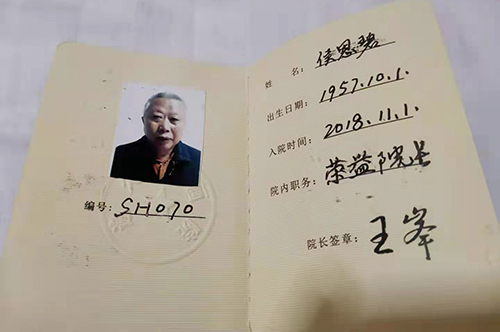 编号：SH070
姓名：侯恩碧
出生日期：1957.10.1.
入院时间：2018.11.1.
院内职务：荣益院长
院长签章：王峰